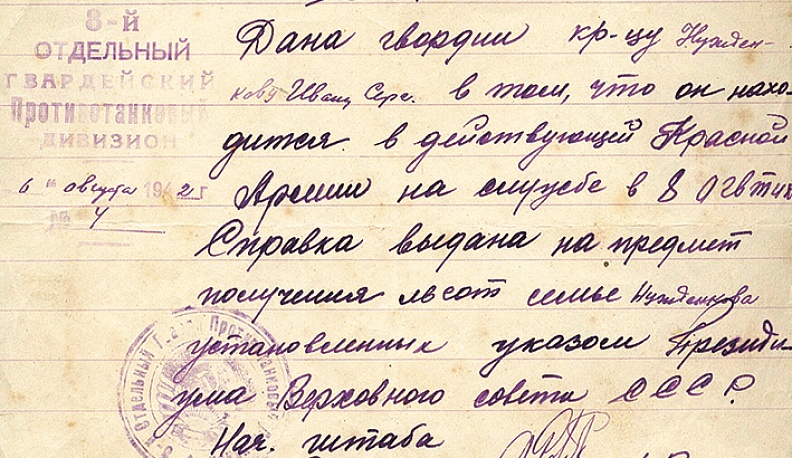 8-й
ОТДЕЛЬНЫЙ
ГВАРДЕЙСКИЙ
Противотанковый
ДИВИЗИОН
6 " августа 1942 г
№ 4
Дана гвардии кр-цу Нужден-
кову Ивану Серг. в том, что он нахо-
дится в действующей Красной
Армии на службе в 8 ОГВ
Справка выдана на предмет
получения льгот семье Нужденкова
установленных указом Президи-
ума Верховного совета СССР.
Нач. штаба